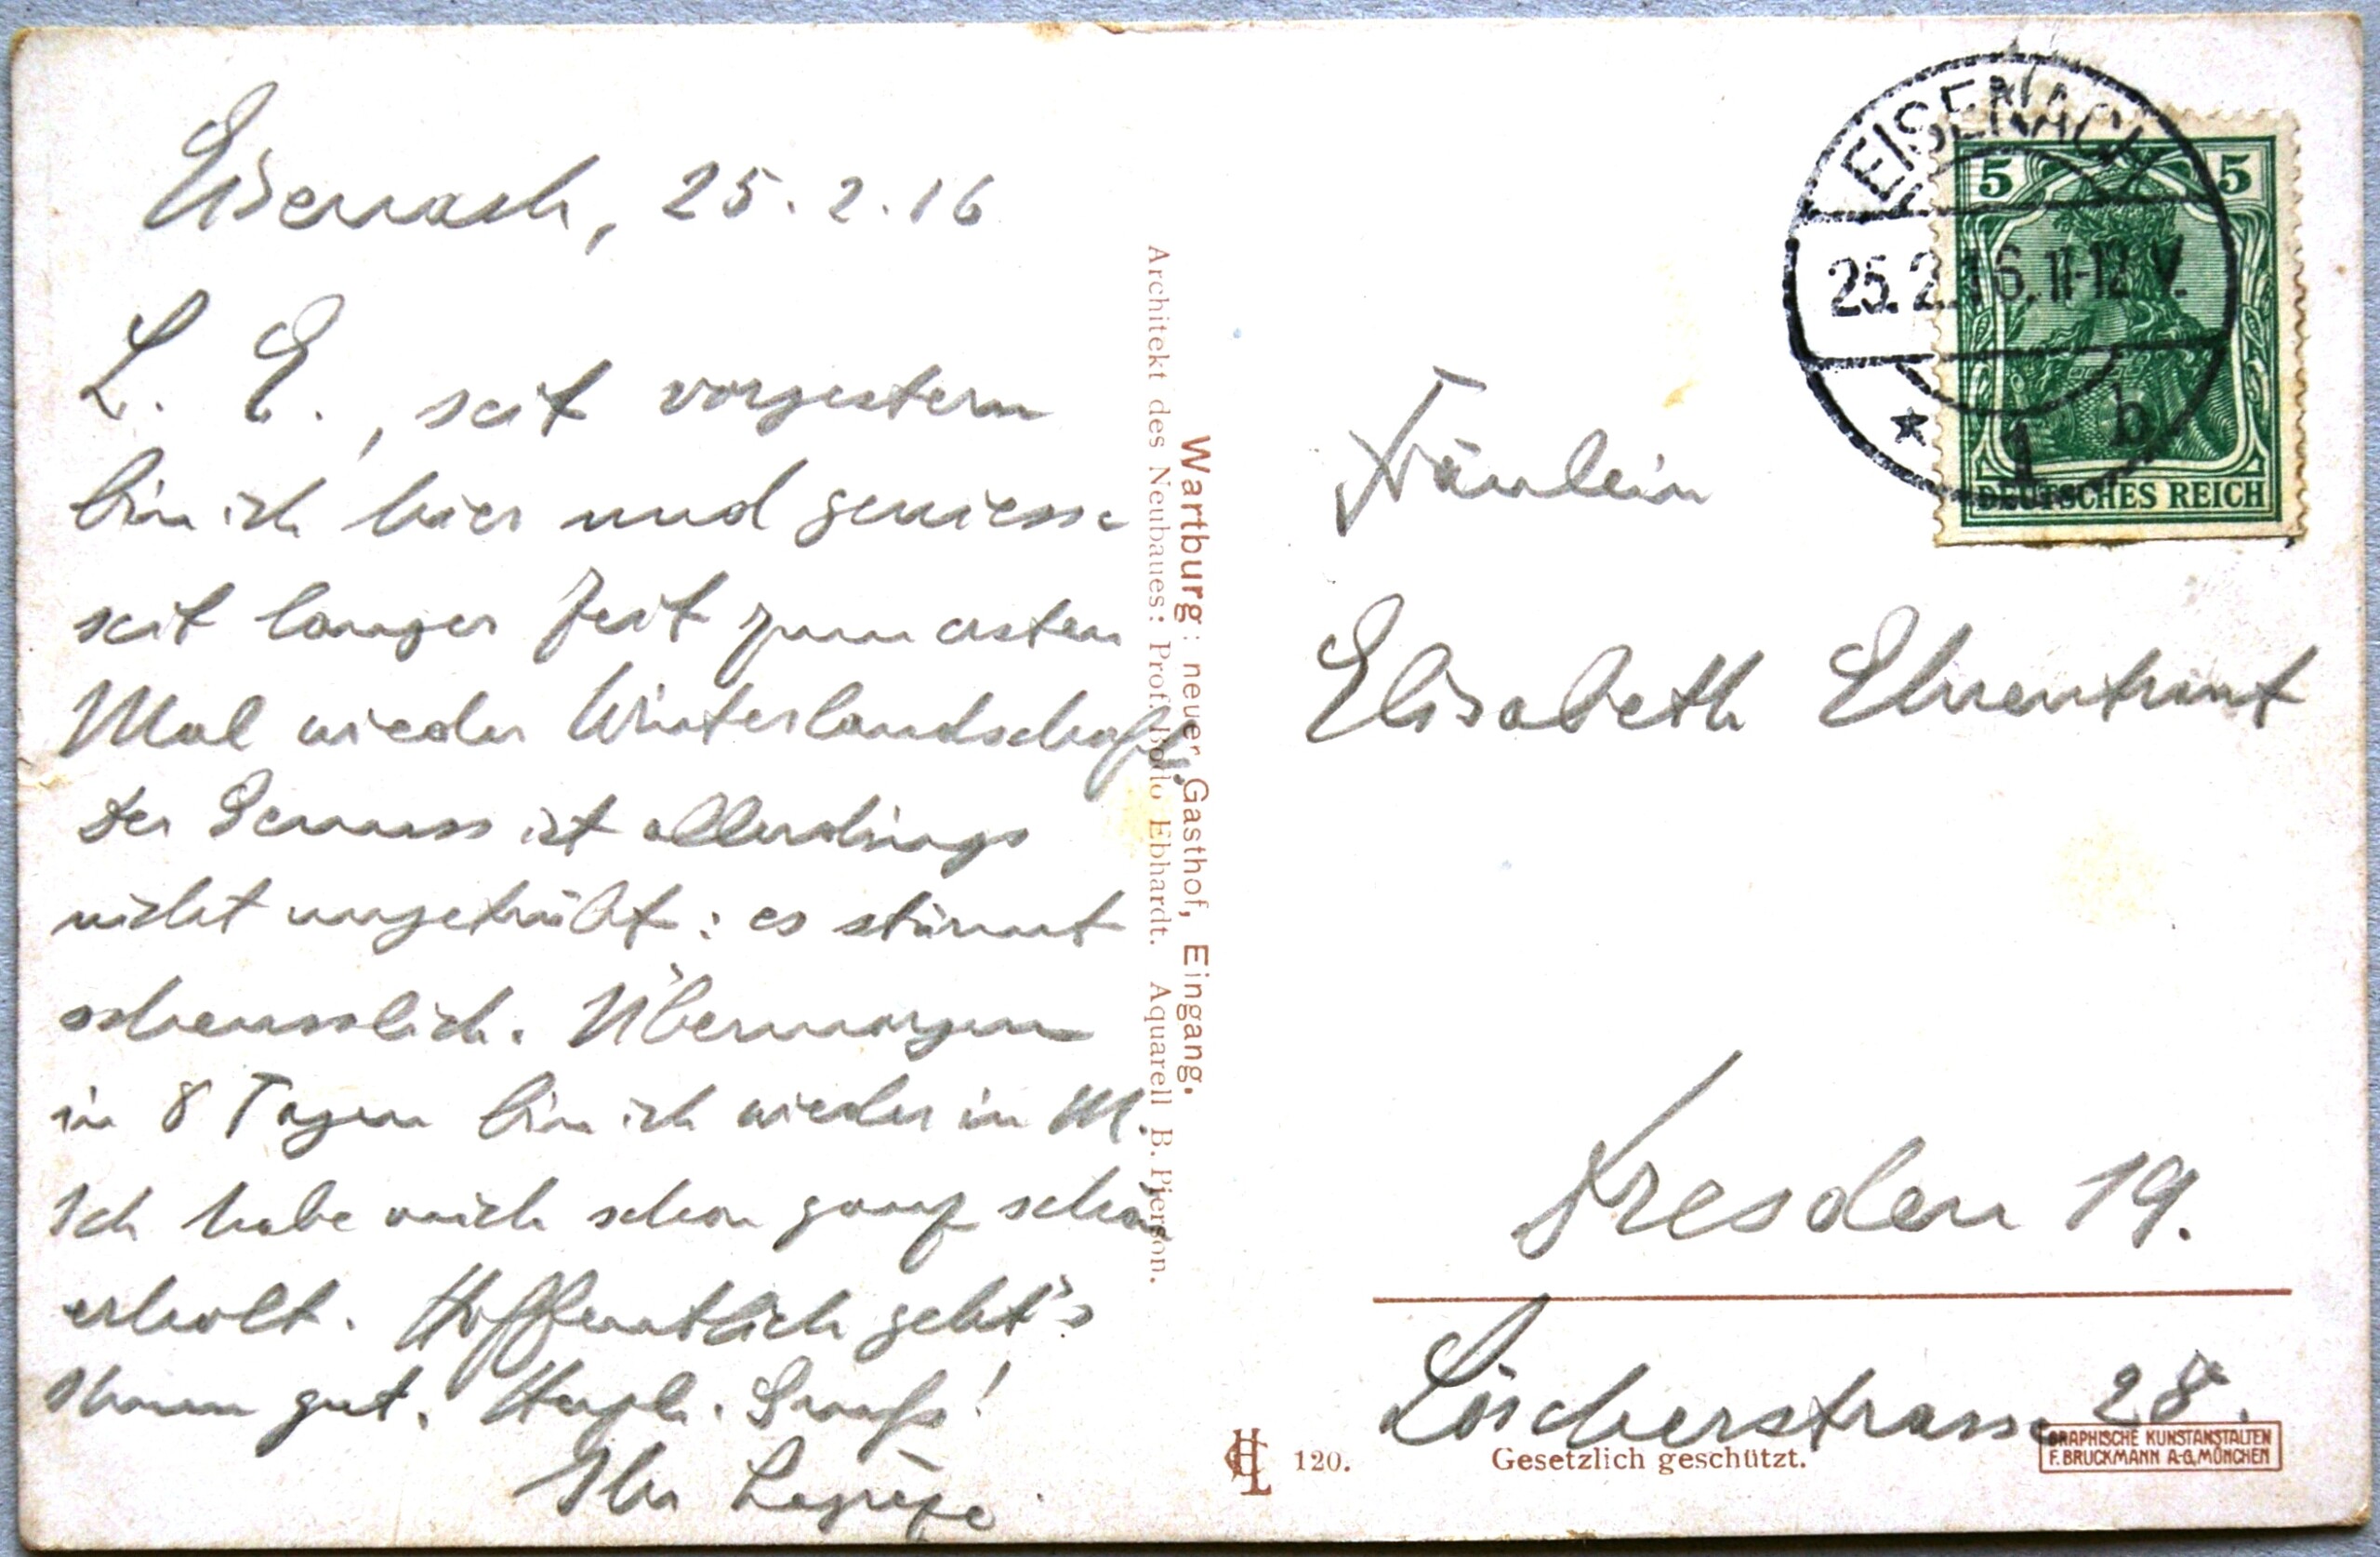 Eisenach, 25. 2. 16
L. E., seit vorgestern
bin ich hier und geniesse
seit langer Zeit zum ersten
Mal wieder Winterlandschaft.
Der Genuss ist allerdings
nicht ungetrübt: es stürmt
scheusslich. Übermorgen
in 8 Tagen bin ich wieder in M.
Ich habe mich schon ganz schön
erholt. Hoffentlich geht's
Ihnen gut. Herzl. Gruss!
Ihr
Wartburg: neuer Gasthof, Eingang.
Architekt des Neubaues: Prof. Bodo Ebhardt. Aquarell B. Pierson.
EISENACH
25.2.16.11-12 V.
* 1 b
5 5
DEUTSCHES REICH
Fräulein
Elisabeth Ehrentraut
Dresden 19.
Löscherstrasse 28.
120.
Gesetzlich geschützt.
GRAPHISCHE KUNSTANSTALTEN
F. BRUCKMANN A-G, MÜNCHEN